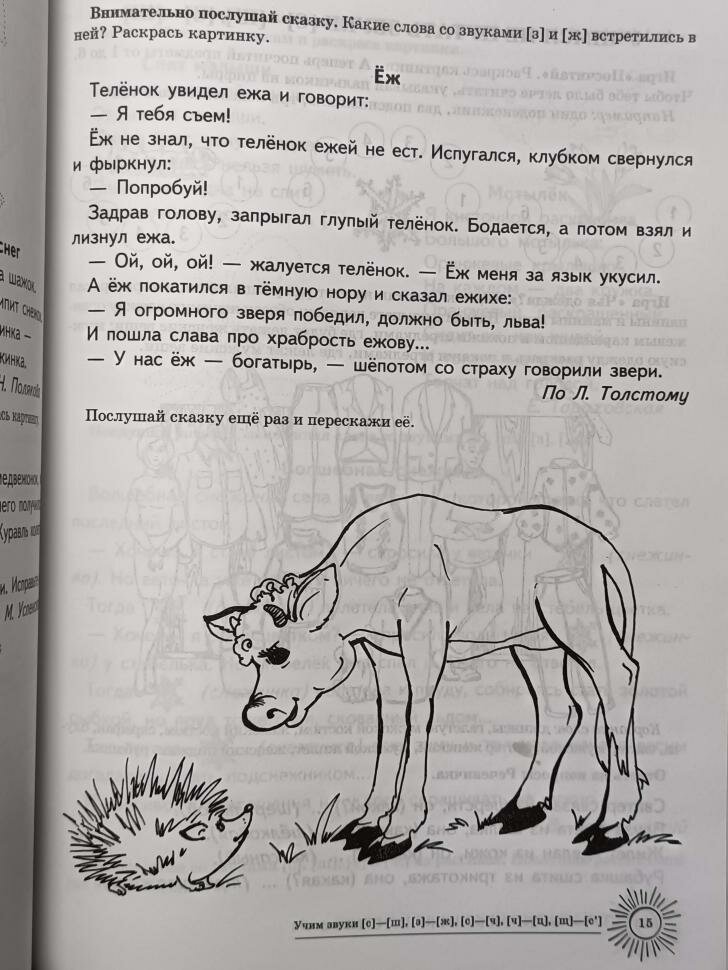 Внимательно послушай сказку. Какие слова со звуками [з] и [ж] встретились в
ней? Раскрась картинку.
Ёж
Телёнок увидел ежа и говорит:
— Я тебя съем!
Ёж не знал, что телёнок ежей не ест. Испугался, клубком свернулся
и фыркнул:
— Попробуй!
Задрав голову, запрыгал глупый телёнок. Бодается, а потом взял и
лизнул ежа.
— Ой, ой, ой! — жалуется телёнок. — Ёж меня за язык укусил.
А ёж покатился в тёмную нору и сказал ежихе:
— Я огромного зверя победил, должно быть, льва!
И пошла слава про храбрость ежову...
— У нас ёж — богатырь, — шёпотом со страху говорили звери.
По Л. Толстому
Послушай сказку ещё раз и перескажи её.
Учим звуки [с]—[ш], [з]—[ж], [с]—[ч], [ч]—[ц], [щ]—[с’]
15
снег
шажок,
инка –
Н. Полякова
медвежонок
М. Успенск